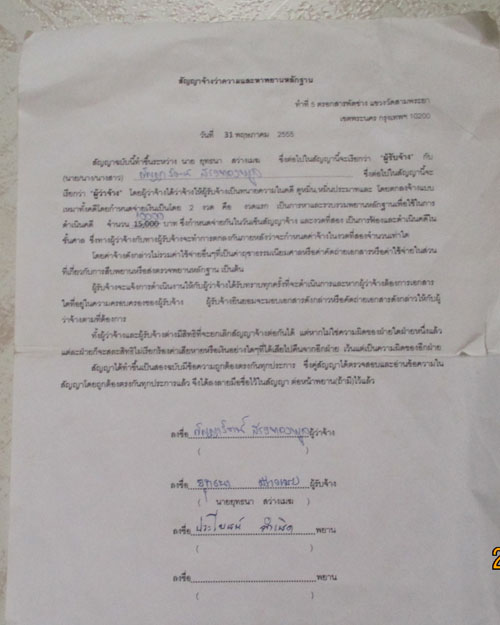 สัญญาจ้างว่าความและหาพยานหลักฐาน
ทำที่ 5 ตรอกสารพัดช่าง แขวงวัดสามพระยา
เขตพระนคร กรุงเทพฯ 10200
วันที่ 31 พฤษภาคม 2555
สัญญาฉบับนี้ทำขึ้นระหว่าง นาย ยุทธนา สว่างเมฆ ซึ่งต่อไปในสัญญานี้จะเรียกว่า "ผู้รับจ้าง" กับ
(นาย/นาง/นางสาว) ซึ่งต่อไปในสัญญานี้จะ
เรียกว่า "ผู้ว่าจ้าง" โดยผู้ว่าจ้างได้ว่าจ้างให้ผู้รับจ้างเป็นทนายความในคดี ดูหมิ่น หมิ่นประมาทและ โดยตกลงจ้างแบบ
เหมาทั้งคดีโดยกำหนดจ่ายเงินเป็นโดย 2 งวด คือ งวดแรก เป็นการหาและรวบรวมพยานหลักฐานเพื่อใช้ในการ
ดำเนินคดี จำนวน 15,000 บาท ซึ่งกำหนดจ่ายกันในวันเซ็นสัญญาจ้าง และงวดที่สอง เป็นการฟ้องและดำเนินคดีใน
ชั้นศาล ซึ่งทางผู้จ้างกับทางผู้รับจ้างจะทำการตกลงกันภายหลังว่าจะกำหนดค่าจ้างในงวดที่สองจำนวนเท่าใด
โดยค่าจ้างดังกล่าวไม่รวมค่าใช้จ่ายอื่นๆที่เป็นค่าฤชาธรรมเนียมศาลหรือค่าคัดถ่ายเอกสารหรือค่าใช้จ่ายในส่วน
ที่เกี่ยวกับการสืบพยานหรือส่งตรวจพยานหลักฐาน เป็นต้น
ผู้รับจ้างจะแจ้งการดำเนินงานให้กับผู้ว่าจ้างได้รับทราบทุกครั้งที่จะดำเนินการและหากผู้ว่าจ้างต้องการเอกสาร
ใดที่อยู่ในความครอบครองของผู้รับจ้าง ผู้รับจ้างยินยอมจะมอบเอกสารดังกล่าวหรือคัดถ่ายเอกสารดังกล่าวให้กับผู้
ว่าจ้างตามที่ต้องการ
ทั้งผู้ว่าจ้างและผู้รับจ้างต่างมีสิทธิที่จะยกเลิกสัญญาจ้างต่อกันได้ แต่หากไม่ใช่ความผิดของฝ่ายใดฝ่ายหนึ่งแล้ว
แต่ละฝ่ายก็จะสละสิทธิไม่เรียกร้องค่าเสียหายหรือเงินอย่างใดๆที่ได้เสียไปคืนจากอีกฝ่าย เว้นแต่เป็นความผิดของอีกฝ่าย
สัญญาได้ทำขึ้นเป็นสองฉบับมีข้อความถูกต้องตรงกันทุกประการ ซึ่งคู่สัญญาได้ตรวจสอบและอ่านข้อความใน
สัญญาโดยถูกต้องตรงกันทุกประการแล้ว จึงได้ลงลายมือชื่อไว้ในสัญญา ต่อหน้าพยาน(ถ้ามี)ไว้แล้ว
ลงชื่อ ผู้ว่าจ้าง
( )
ลงชื่อ ยุทธนา สว่างเมฆ ผู้รับจ้าง
( นายยุทธนา สว่างเมฆ )
ลงชื่อ ประโยชน์ พยาน
( )
ลงชื่อ พยาน
( )
2